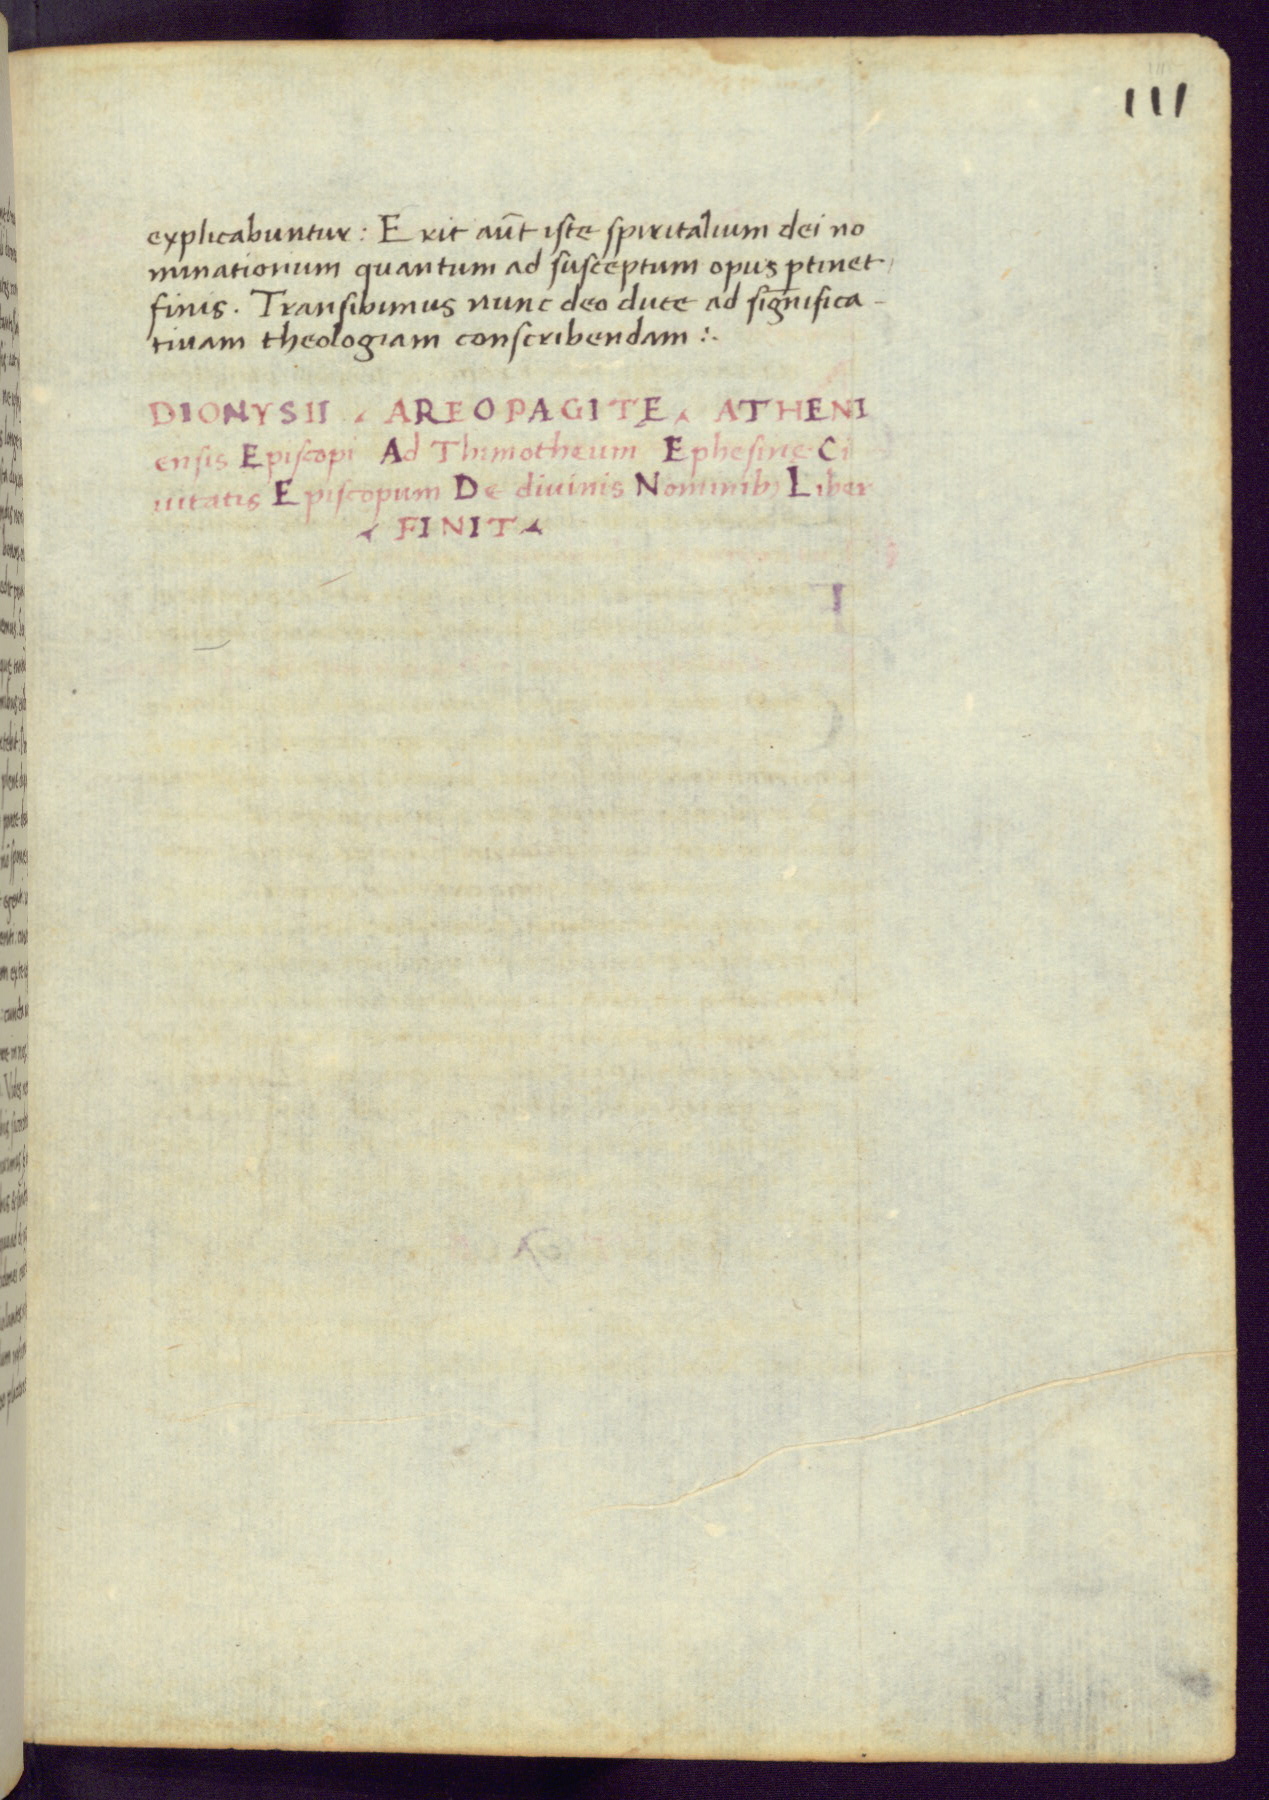 111
explicabuntur: Erit aūt iste spiritalium dei no
minationum quantum ad susceptum opus ptinet
finis. Transibimus nunc deo duce ad significa-
tivam theologiam conscribendam :.
DIONYSII AREOPAGITĘ ATHENI
ensis Episcopi Ad Thimotheum Ephesinę Ci
vitatis Episcopum De divinis Nominib; Liber
FINIT